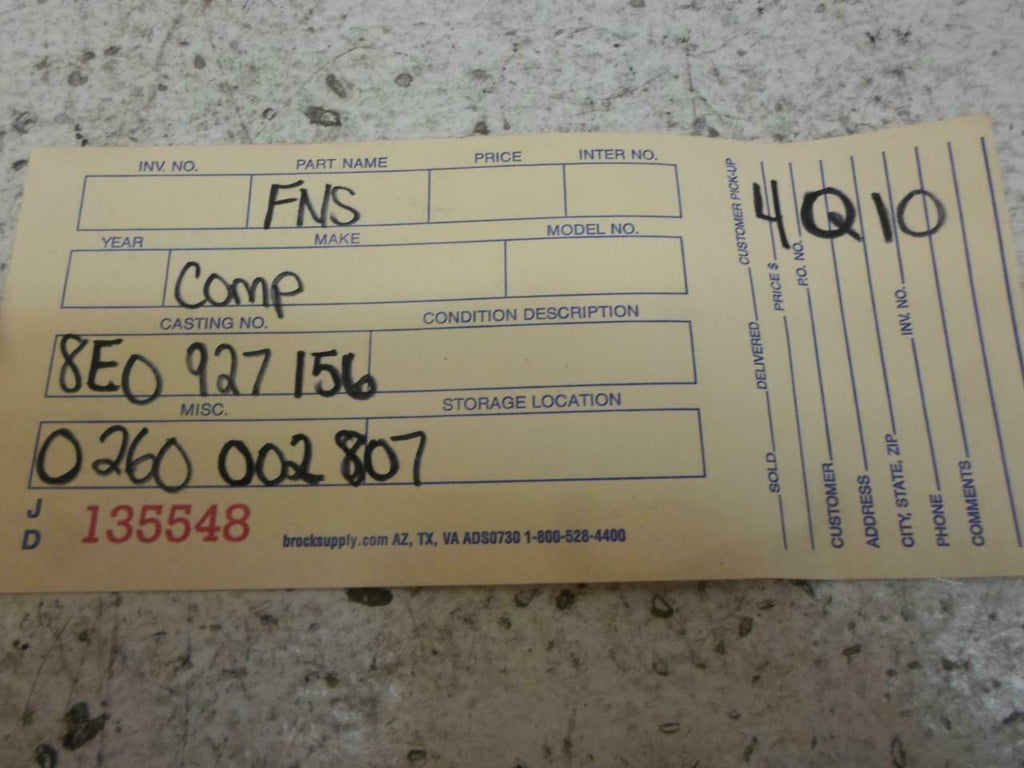 INV. NO. PART NAME PRICE INTER NO.
FNS
YEAR MAKE MODEL NO.
Comp
CASTING NO. CONDITION DESCRIPTION
8E0 927 156
MISC. STORAGE LOCATION
0260 002 807
J
D
135548
brocksupply.com AZ, TX, VA ADS0730 1-800-528-4400
4Q10
SOLD DELIVERED CUSTOMER PICK-UP
PRICE $ P.O. NO.
CUSTOMER
ADDRESS
CITY, STATE, ZIP INV. NO.
PHONE
COMMENTS